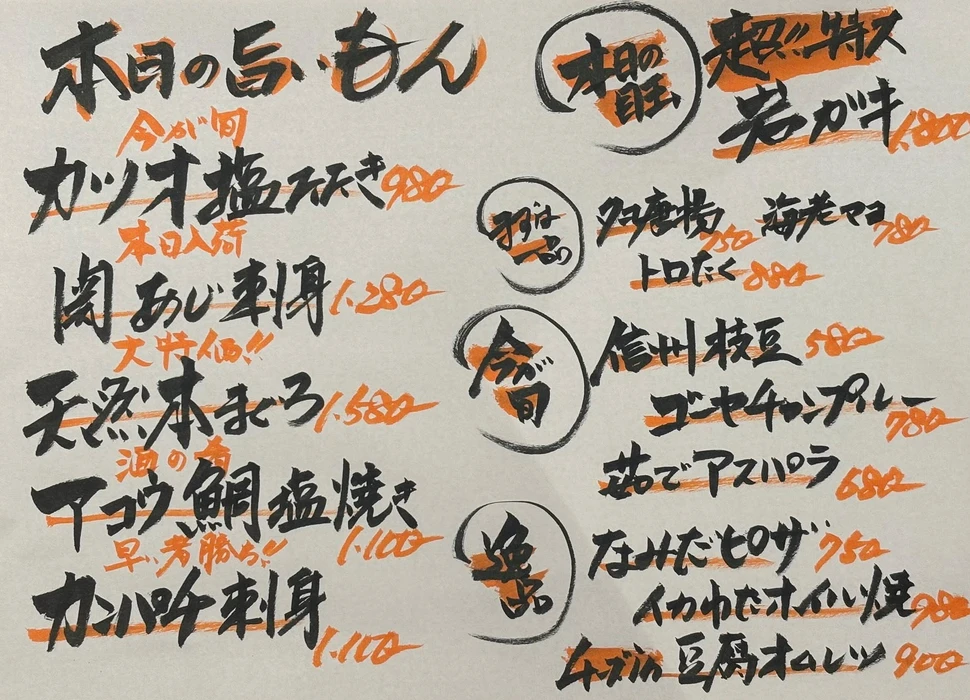 本日の旨いもん
今が旬
カツオ塩たたき 980
本日入荷
関あじ刺身 1.280
大特価!!
天然本まぐろ 1.580
酒の肴
アコウ鯛塩焼き 1.100
早い者勝ち!!
カンパチ刺身 1.100
本日の目玉
超!!特大
岩ガキ 1.800
まずは一品
タコ唐揚 750 海老マヨ 780
トロたく 880
今が旬
信州枝豆 580
ゴーヤチャンプルー 780
茹でアスパラ 680
逸品
なみだピザ 750
イカわたホイル焼 980
チーズin豆腐オムレツ 900